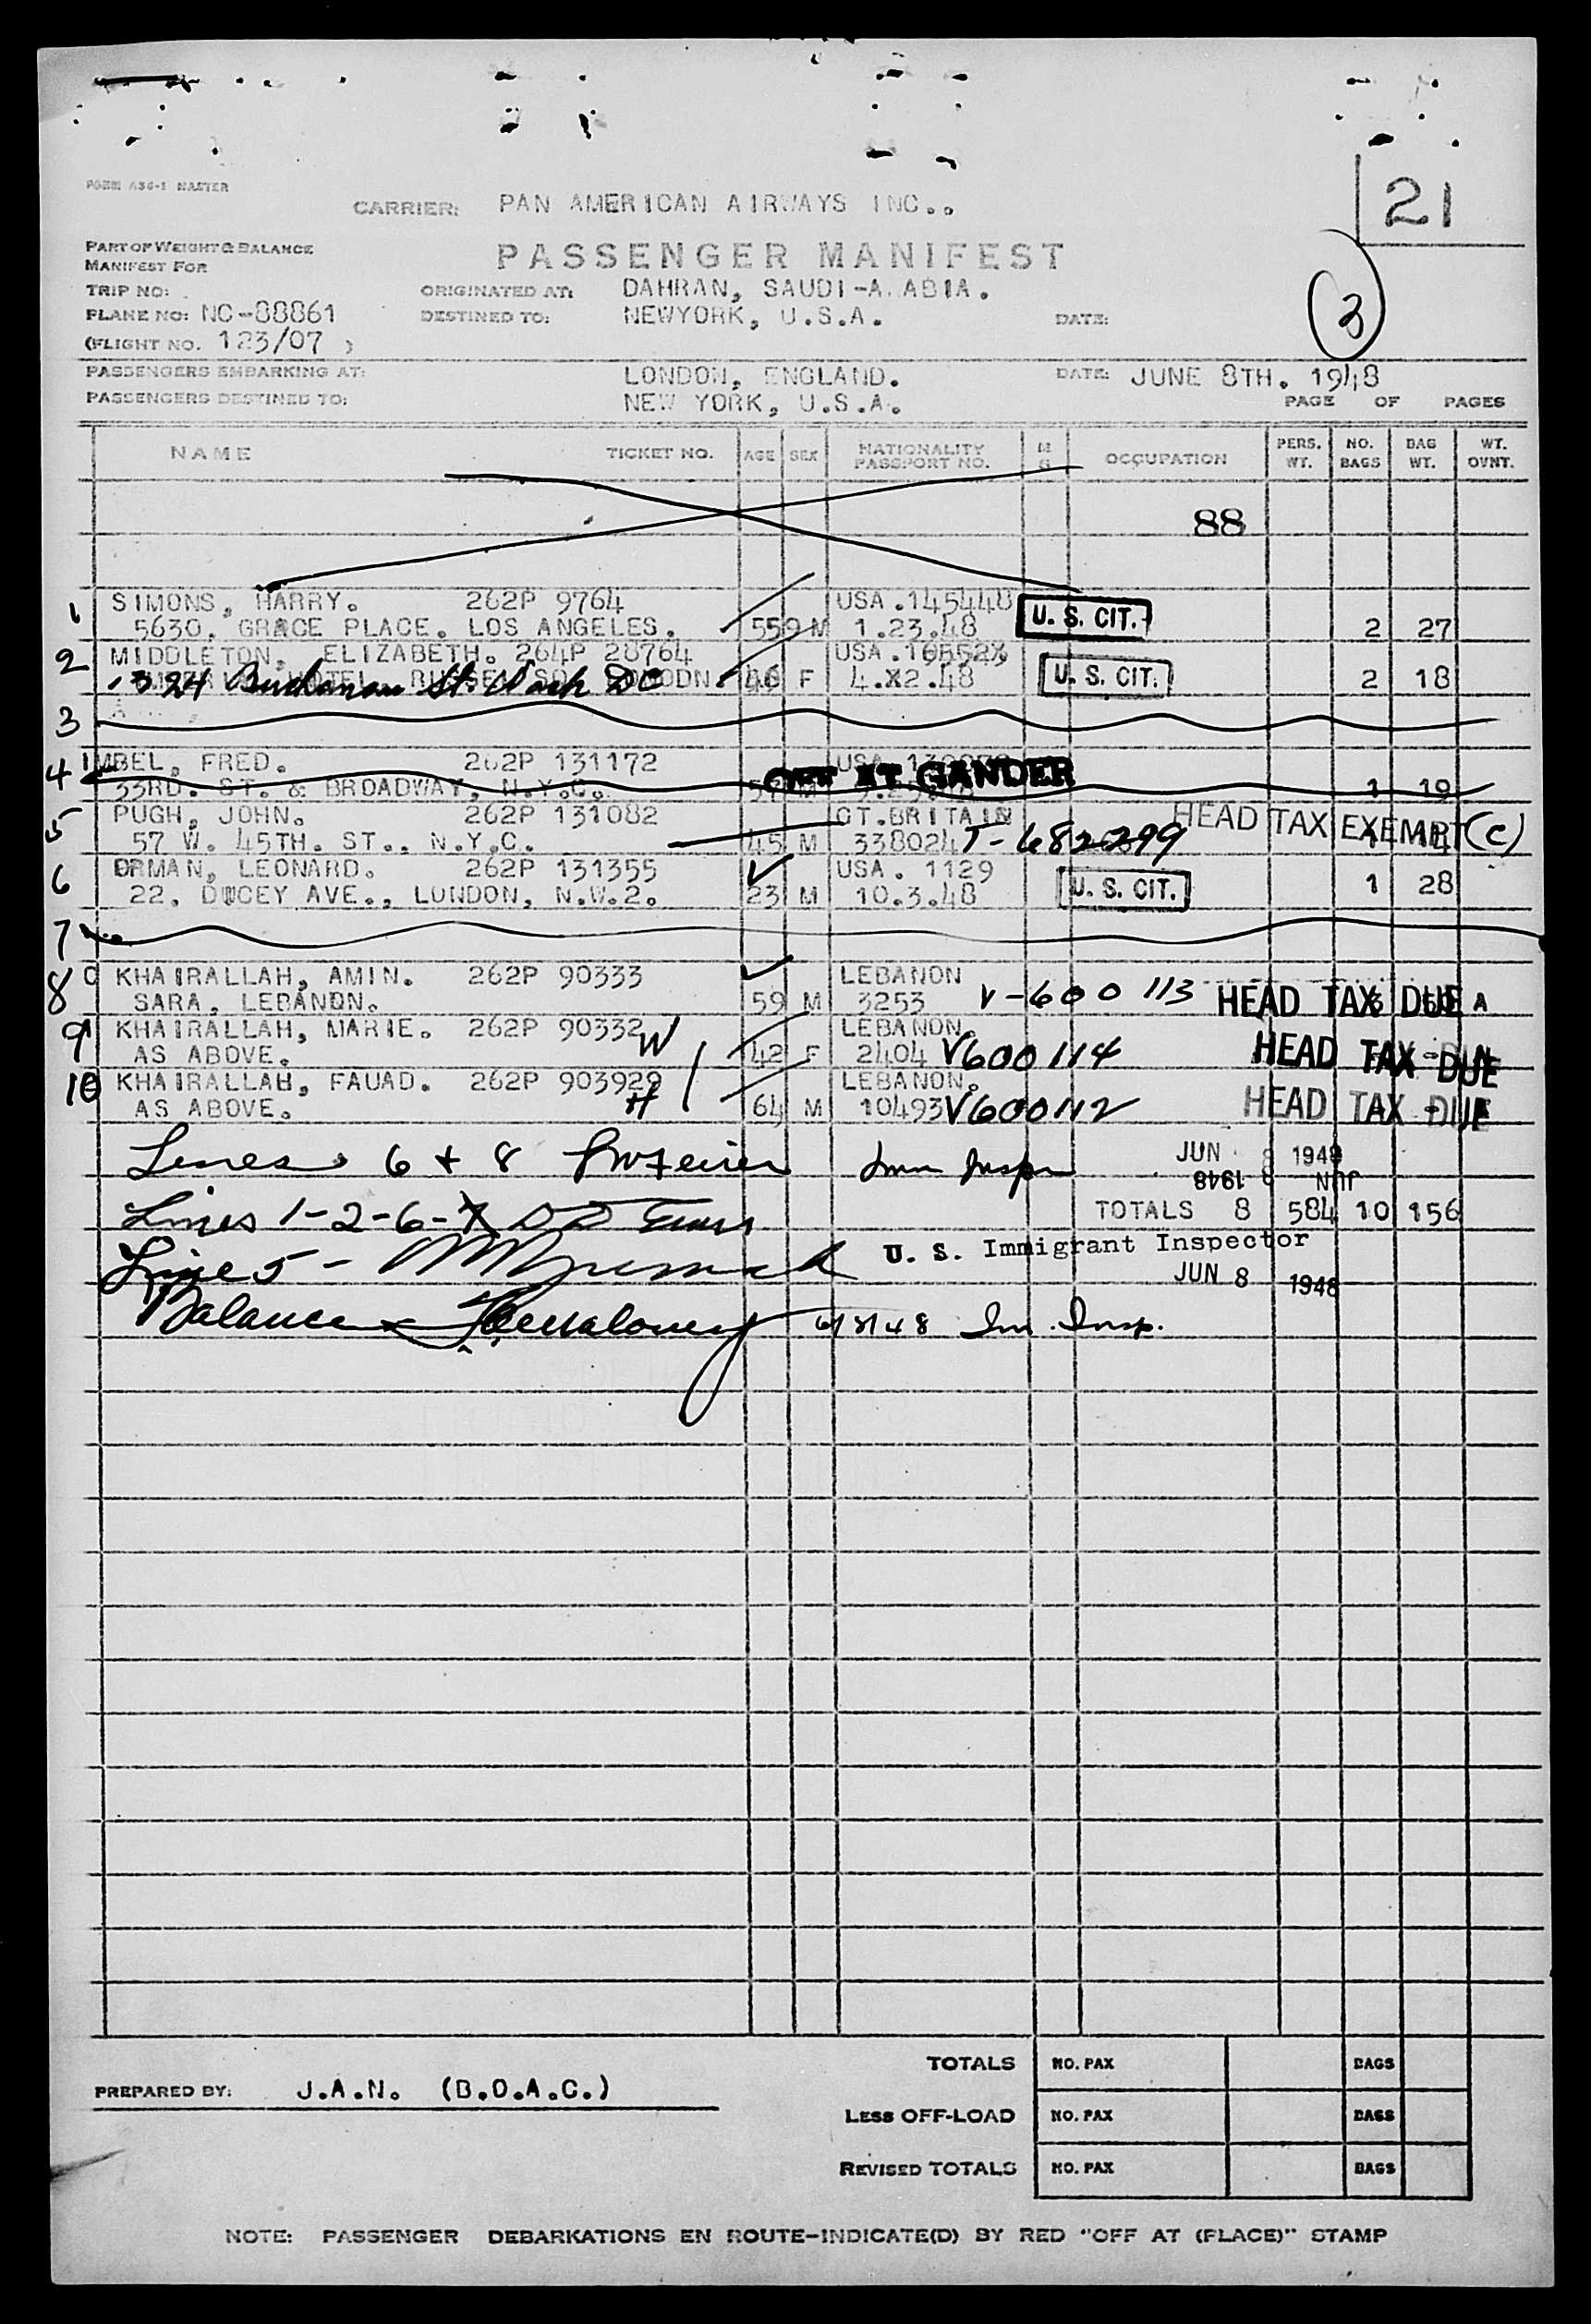 FORM A36-1 MASTER
21
CARRIER: PAN AMERICAN AIRWAYS INC..
PART OF WEIGHT & BALANCE
MANIFEST FOR
PASSENGER MANIFEST
3
TRIP NO:
ORIGINATED AT: DAHRAN, SAUDI-A.ABIA.
PLANE NO: NC-88861
DESTINED TO: NEWYORK, U.S.A.
DATE:
(FLIGHT NO. 123/07 )
PASSENGERS EMBARKING AT: LONDON, ENGLAND. DATE: JUNE 8TH. 1948
PASSENGERS DESTINED TO: NEW YORK, U.S.A.
PAGE OF PAGES
NAME TICKET NO. AGE SEX NATIONALITY PASSPORT NO. M S OCCUPATION PERS. WT. NO. BAGS BAG WT. WT. OVNT.
88
1 SIMONS, HARRY. 262P 9764 USA.145448
5630. GRACE PLACE. LOS ANGELES. 559 M 1.23.48 U. S. CIT. 2 27
2 MIDDLETON, ELIZABETH. 264P 28764 USA.
1324 Buchanan St. Wash DC 46 F 4.X2.48 U. S. CIT. 2 18
3
4 IMBEL, FRED. 262P 131172 USA
33RD. ST. & BROADWAY, N.Y.C. 57 M OFF AT GANDER 1 19
5 PUGH, JOHN. 262P 131082 GT.BRITAIN HEAD TAX EXEMPT (C)
57 W. 45TH. ST.. N.Y.C. 45 M 338024 T-682299
6 ORMAN, LEONARD. 262P 131355 USA. 1129
22. DUCEY AVE., LONDON, N.W.2. 23 M 10.3.48 U. S. CIT. 1 28
7
8 C KHAIRALLAH, AMIN. 262P 90333 LEBANON
SARA, LEBANON. 59 M 3253 V-600113 HEAD TAX DUE A
9 KHAIRALLAH, MARIE. 262P 90332 W LEBANON.
AS ABOVE. 42 F 2404 V600114 HEAD TAX DUE
10 KHAIRALLAH, FAUAD. 262P 903929 H LEBANON.
AS ABOVE. 64 M 10493 V600112 HEAD TAX DUE
Lines 6 & 8 Imm Inspr JUN 8 1948
JUN 8 1948
Lines 1-2-6-
TOTALS 8 584 10 156
Line 5 -
U. S. Immigrant Inspector
JUN 8 1948
Balance 6/8/48 Im. Insp.
TOTALS NO. PAX BAGS
PREPARED BY: J.A.N. (B.O.A.C.)
LESS OFF-LOAD NO. PAX BAGS
REVISED TOTALS NO. PAX BAGS
NOTE: PASSENGER DEBARKATIONS EN ROUTE-INDICATE(D) BY RED "OFF AT (PLACE)" STAMP